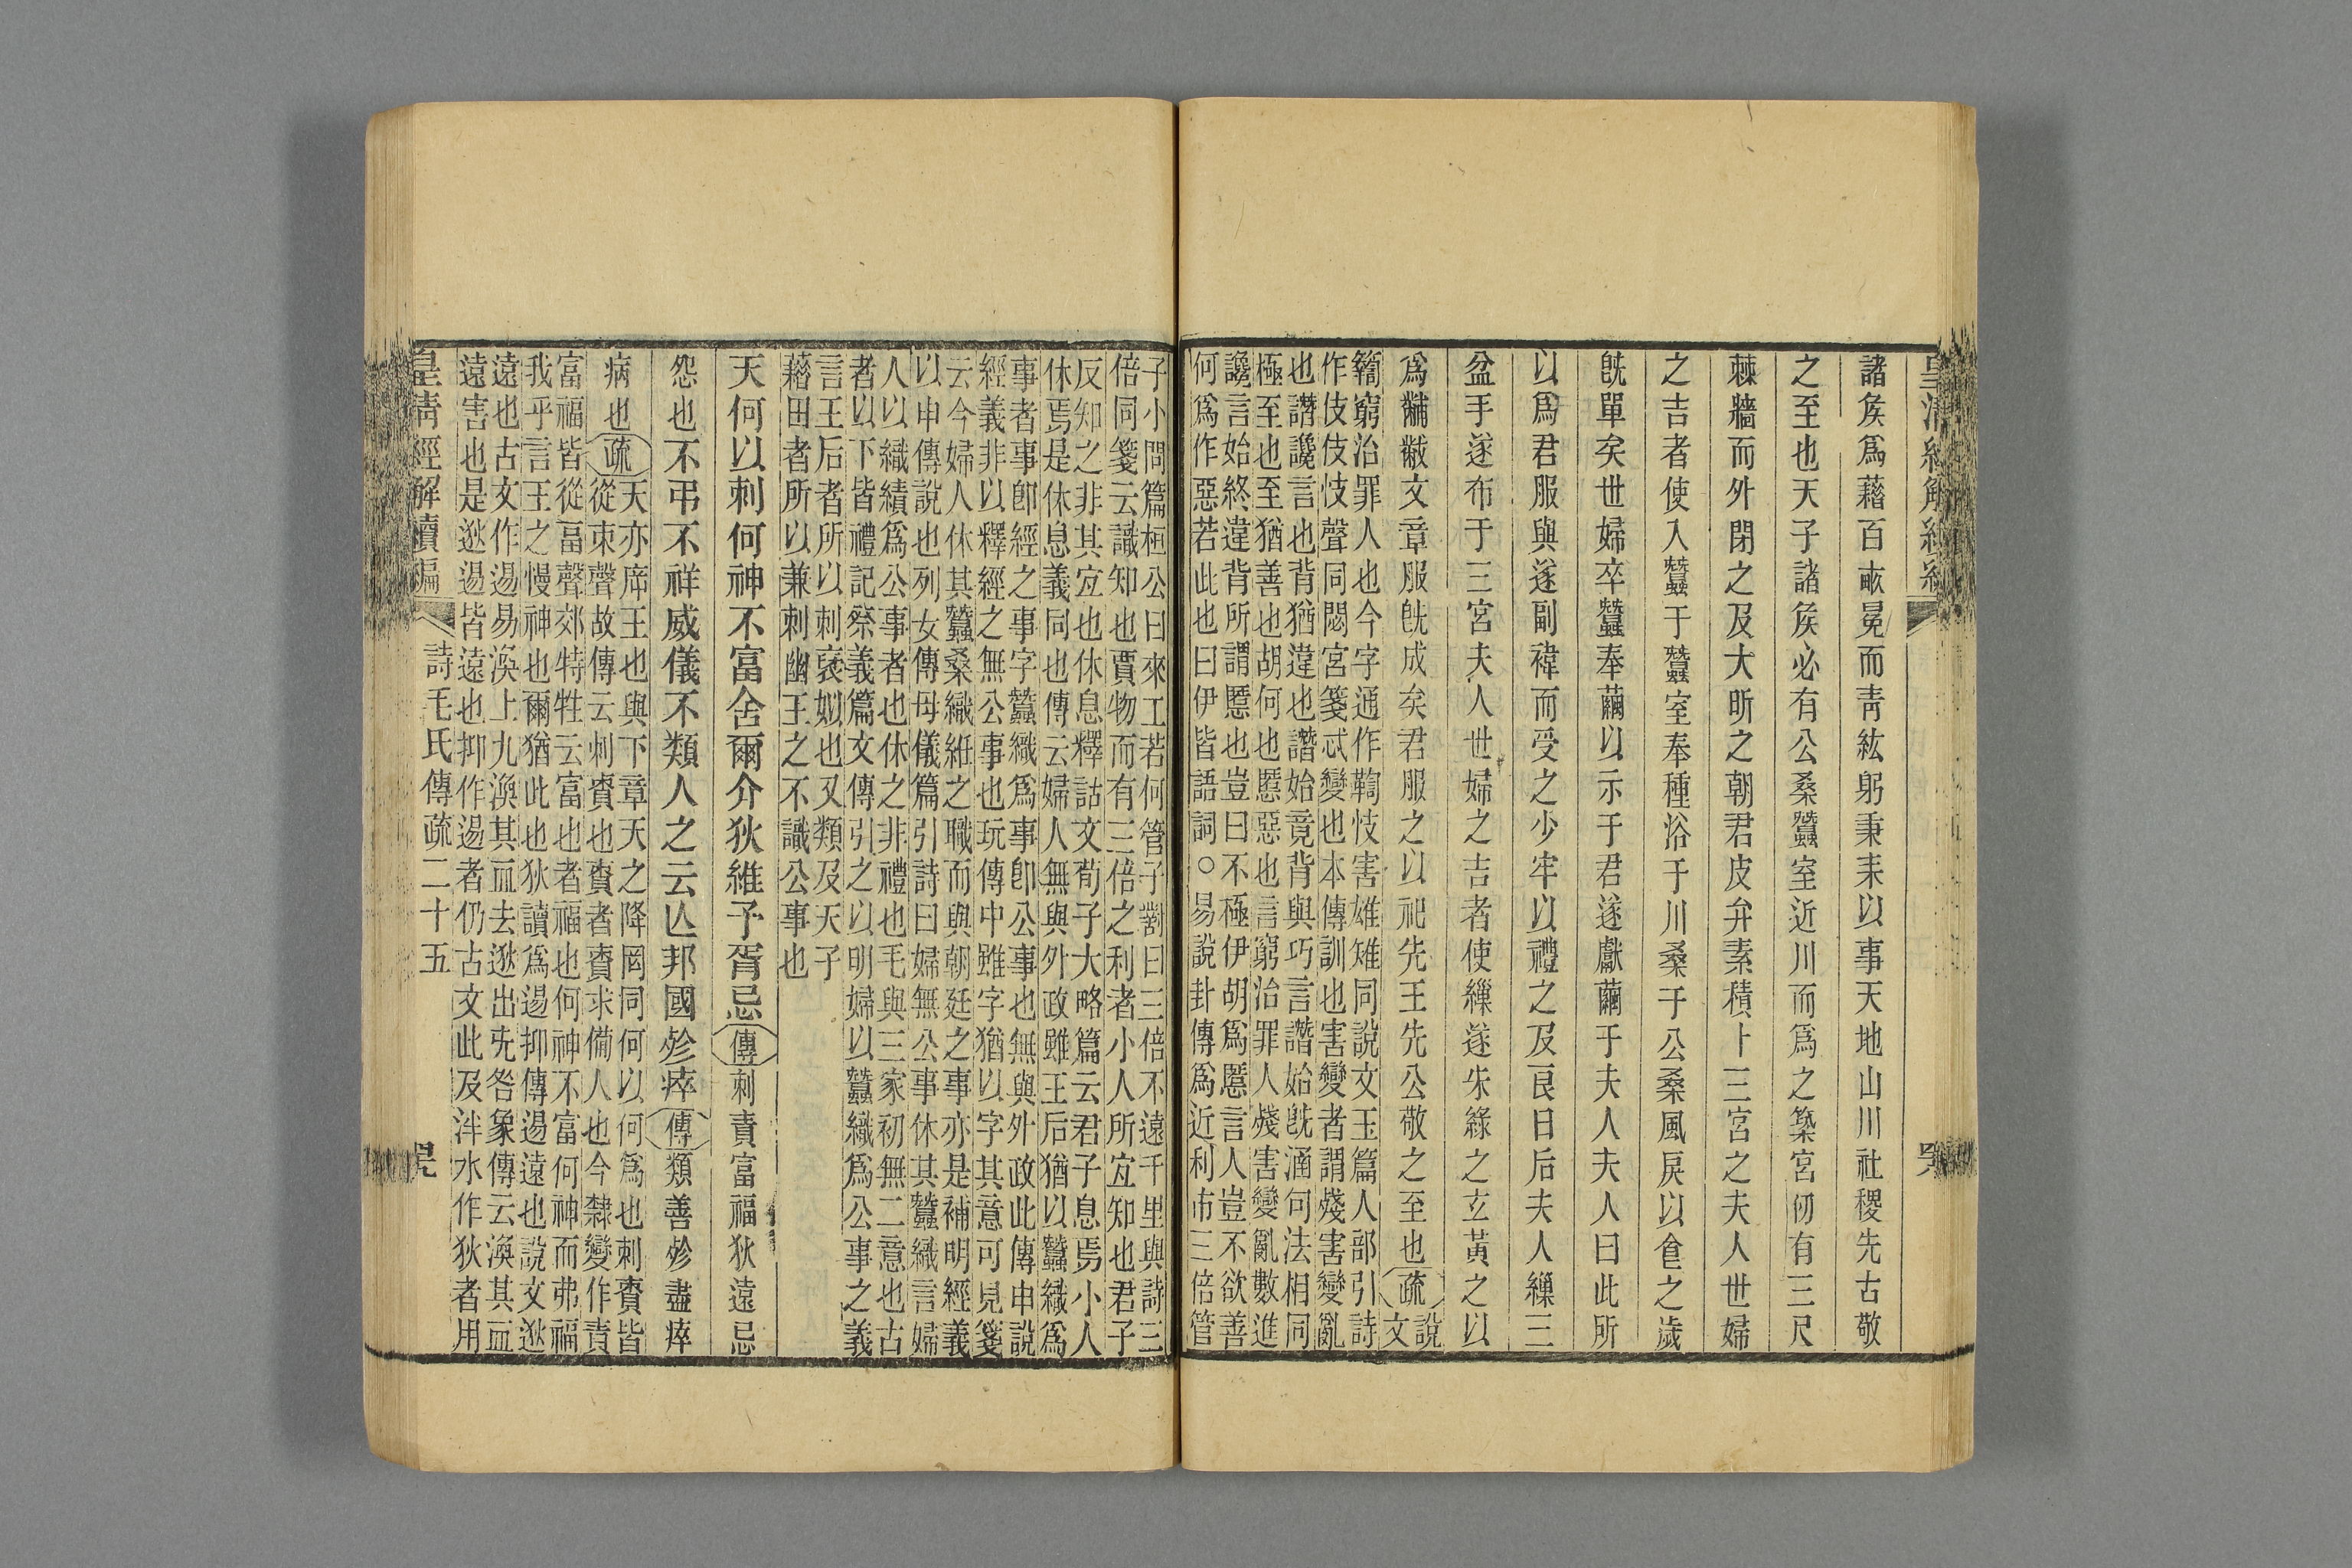 皇清經解續編
諸矦爲藉百畝冕而靑紘躬秉耒以事天地山川社稷先古敬
之至也天子諸矦必有公桑蠶室近川而爲之築宮仞有三尺
棘牆而外閉之及大昕之朝君皮弁素積卜三宮之夫人世婦
之吉者使入蠶于蠶室奉種浴于川桑于公桑風戾以食之歲
旣單矣世婦卒蠶奉繭以示于君遂獻繭于夫人夫人曰此所
以爲君服與遂副褘而受之少牢以禮之及良日后夫人繅三
盆手遂布于三宮夫人世婦之吉者使繅遂朱綠之玄黃之以
爲黼黻文章服旣成矣君服之以祀先王先公敬之至也疏說
文
籥窮治罪人也今字通作鞫忮害雄雉同說文玉篇人部引詩
作伎伎忮聲同閟宮箋忒變也本傳訓也害變者謂殘害變亂
也譖讒言也背猶違也譖始竟背與巧言譖始旣涵句法相同
極至也至猶善也胡何也慝惡也言窮治罪人殘害變亂數進
讒言始終違背所謂慝也豈曰不極伊胡爲慝言人豈不欲善
何爲作惡若此也曰伊皆語詞○易說卦傳爲近利市三倍管
子小問篇桓公曰來工若何管子對曰三倍不遠千里與詩三
倍同箋云識知也賈物而有三倍之利者小人所宜知也君子
反知之非其宜也休息釋詁文荀子大略篇云君子息焉小人
休焉是休息義同也傳云婦人無與外政雖王后猶以蠶織爲
事者事卽經之事字蠶織爲事卽公事也無與外政此傳申說
經義非以釋經之無公事也玩傳中雖字猶以字其意可見箋
云今婦人休其蠶桑織紝之職而與朝廷之事亦是補明經義
以申傳說也列女傳母儀篇引詩曰婦無公事休其蠶織言婦
人以織績爲公事者也休之非禮也毛與三家初無二意也古
者以下皆禮記祭義篇文傳引之以明婦以蠶織爲公事之義
言王后者所以刺襃姒也又類及天子
藉田者所以兼刺幽王之不識公事也
天何以刺何神不富舍爾介狄維予胥忌傳刺責富福狄遠忌
怨也不弔不祥威儀不類人之云亾邦國殄瘁傳類善殄盡瘁
病也疏天亦庠王也與下章天之降罔同何以何爲也刺賚皆
從朿聲故傳云刺賚也賚者賚求備人也今隸變作責
富福皆從畐聲郊特牲云富也者福也何神不富何神而弗福
我乎言王之慢神也爾猶此也狄讀爲逷抑傳逷遠也說文逖
遠也古文作逷易渙上九渙其血去逖出旡咎象傳云渙其血
遠害也是逖逷皆遠也抑作逷者仍古文此及泮水作狄者用
皇淸經解續編
詩毛氏傳疏二十五